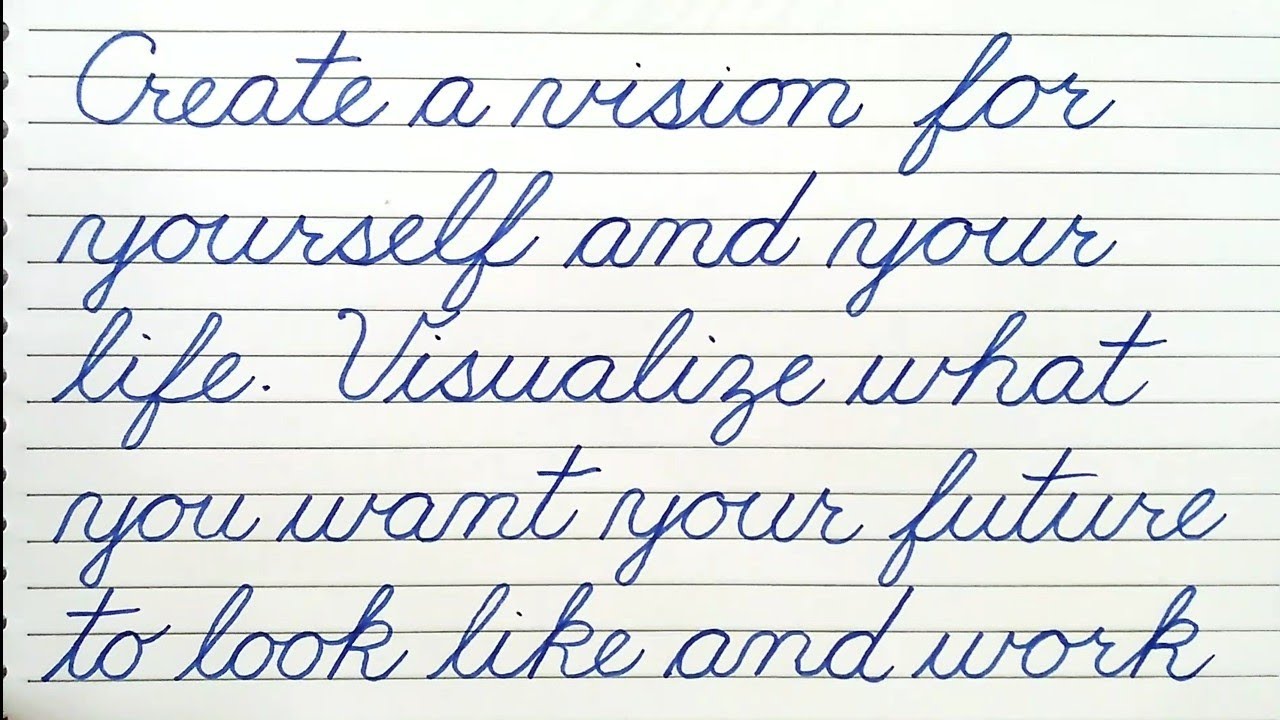 Create a vision for
yourself and your
life. Visualize what
you want your future
to look like and work